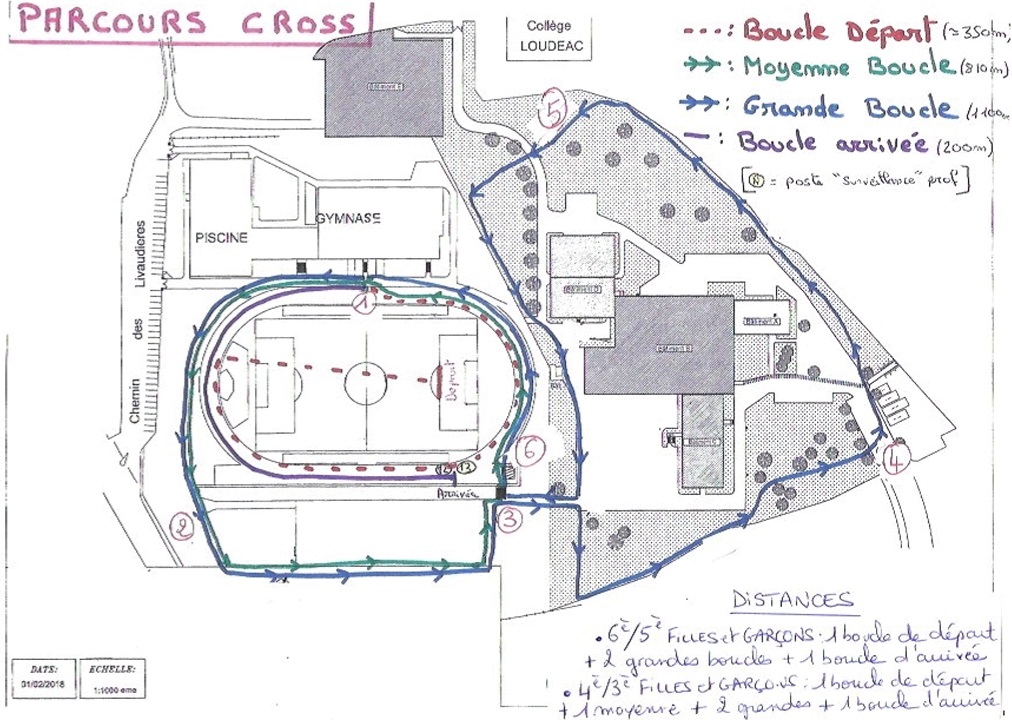 PARCOURS CROSS
Collège
LOUDEAC
: Boucle Départ (≈350m)
: Moyenne Boucle (810m)
: Grande Boucle
: Boucle arrivée (200m)
[(N) = poste "surveillance" prof]
5
GYMNASE
PISCINE
Chemin des Livaudieres
1
Départ
Bâtiment A
6
4
Arrivée
12
3
2
DISTANCES
• 6è/5è FILLES et GARÇONS : 1 boucle de départ
+ 2 grandes boucles + 1 boucle d'arrivée
• 4è/3è FILLES et GARÇONS : 1 boucle de départ
+ 1 moyenne + 2 grandes + 1 boucle d'arrivée
DATE:
01/02/2018
ECHELLE:
1:1000 eme